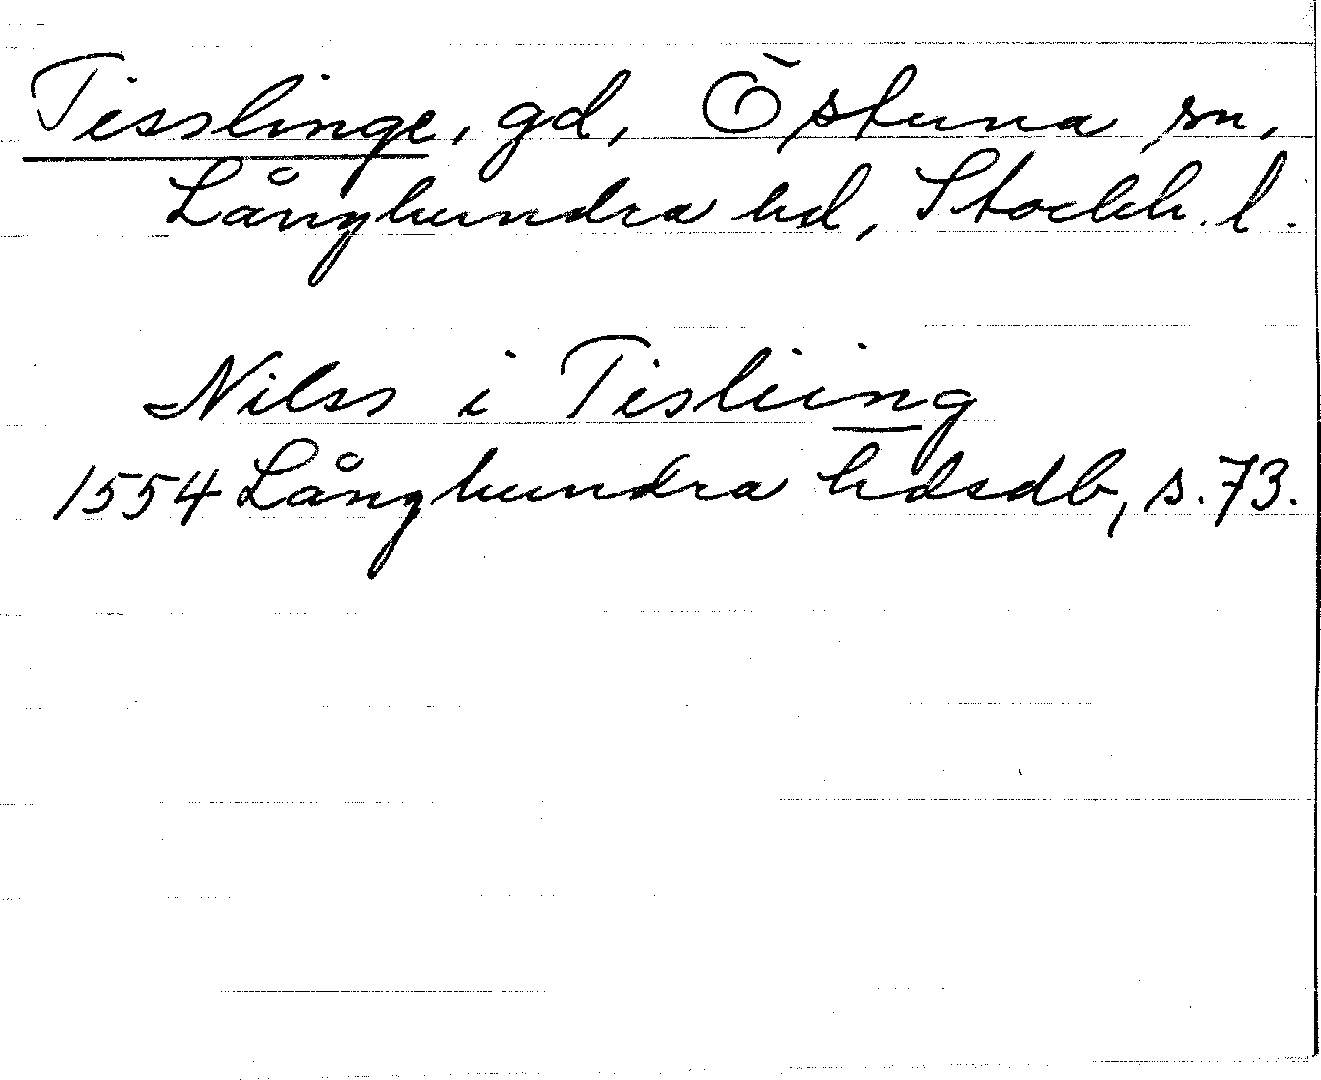 Tisslinge, gd, Östuna sn,
Långhundra hd, Stockh. l.
Nilss i Tisliing
1554 Långhundra hdsdb, s. 73.